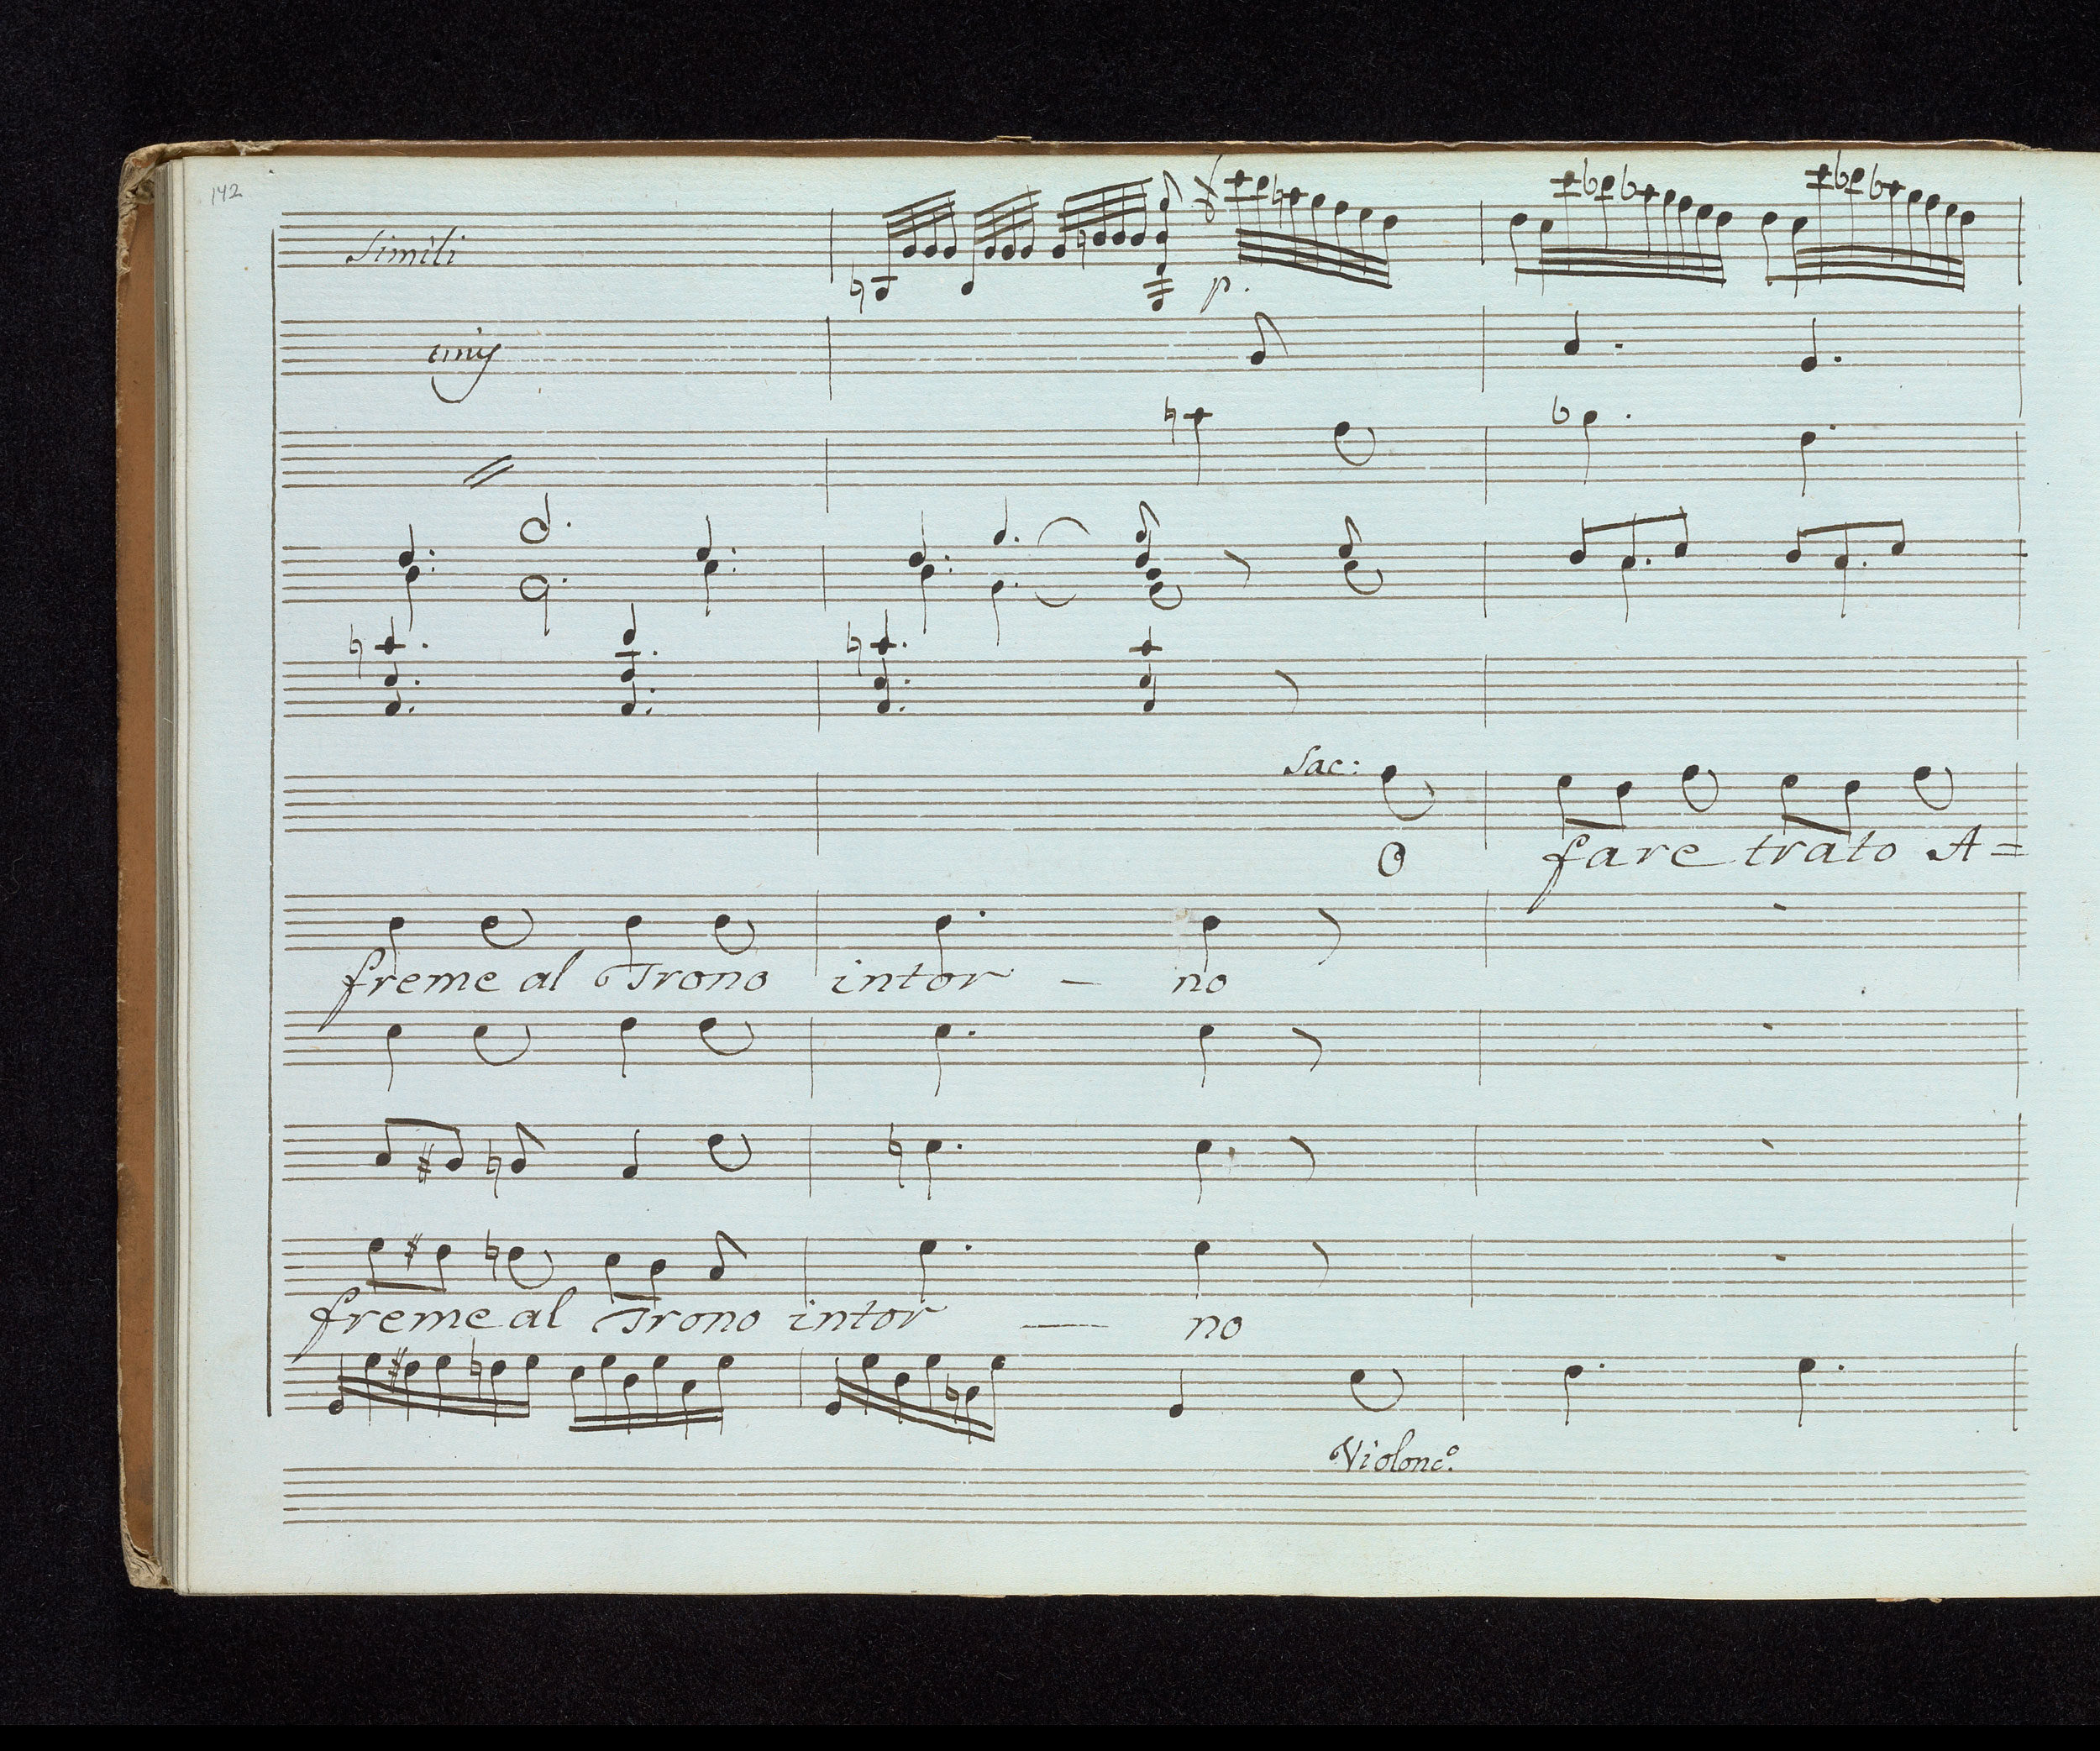 142
Simili
p.
unis
Sac:
O fare trato A=
freme al Trono intor — no
freme al Trono intor — no
Violonc.º